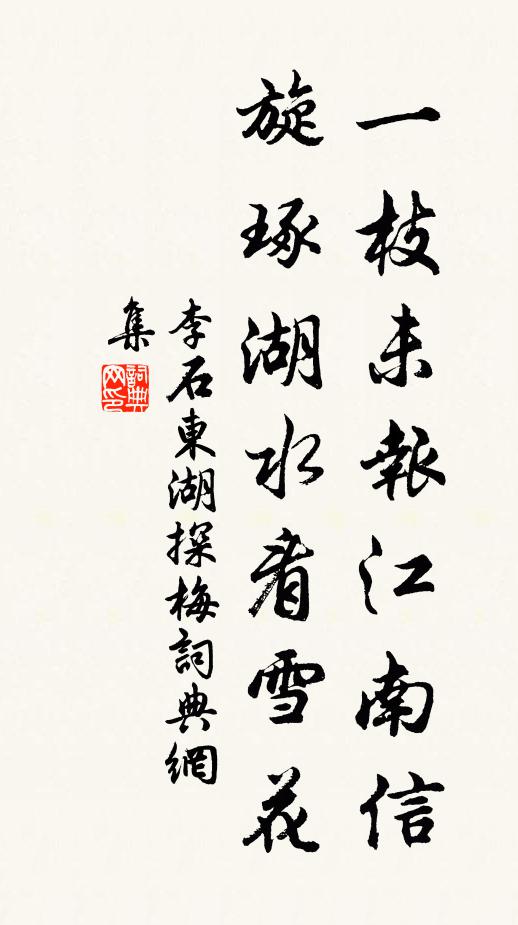 一枝未報江南信
旋琢湖水看雪花
李石東湖探梅詞典網
集
詞典網印